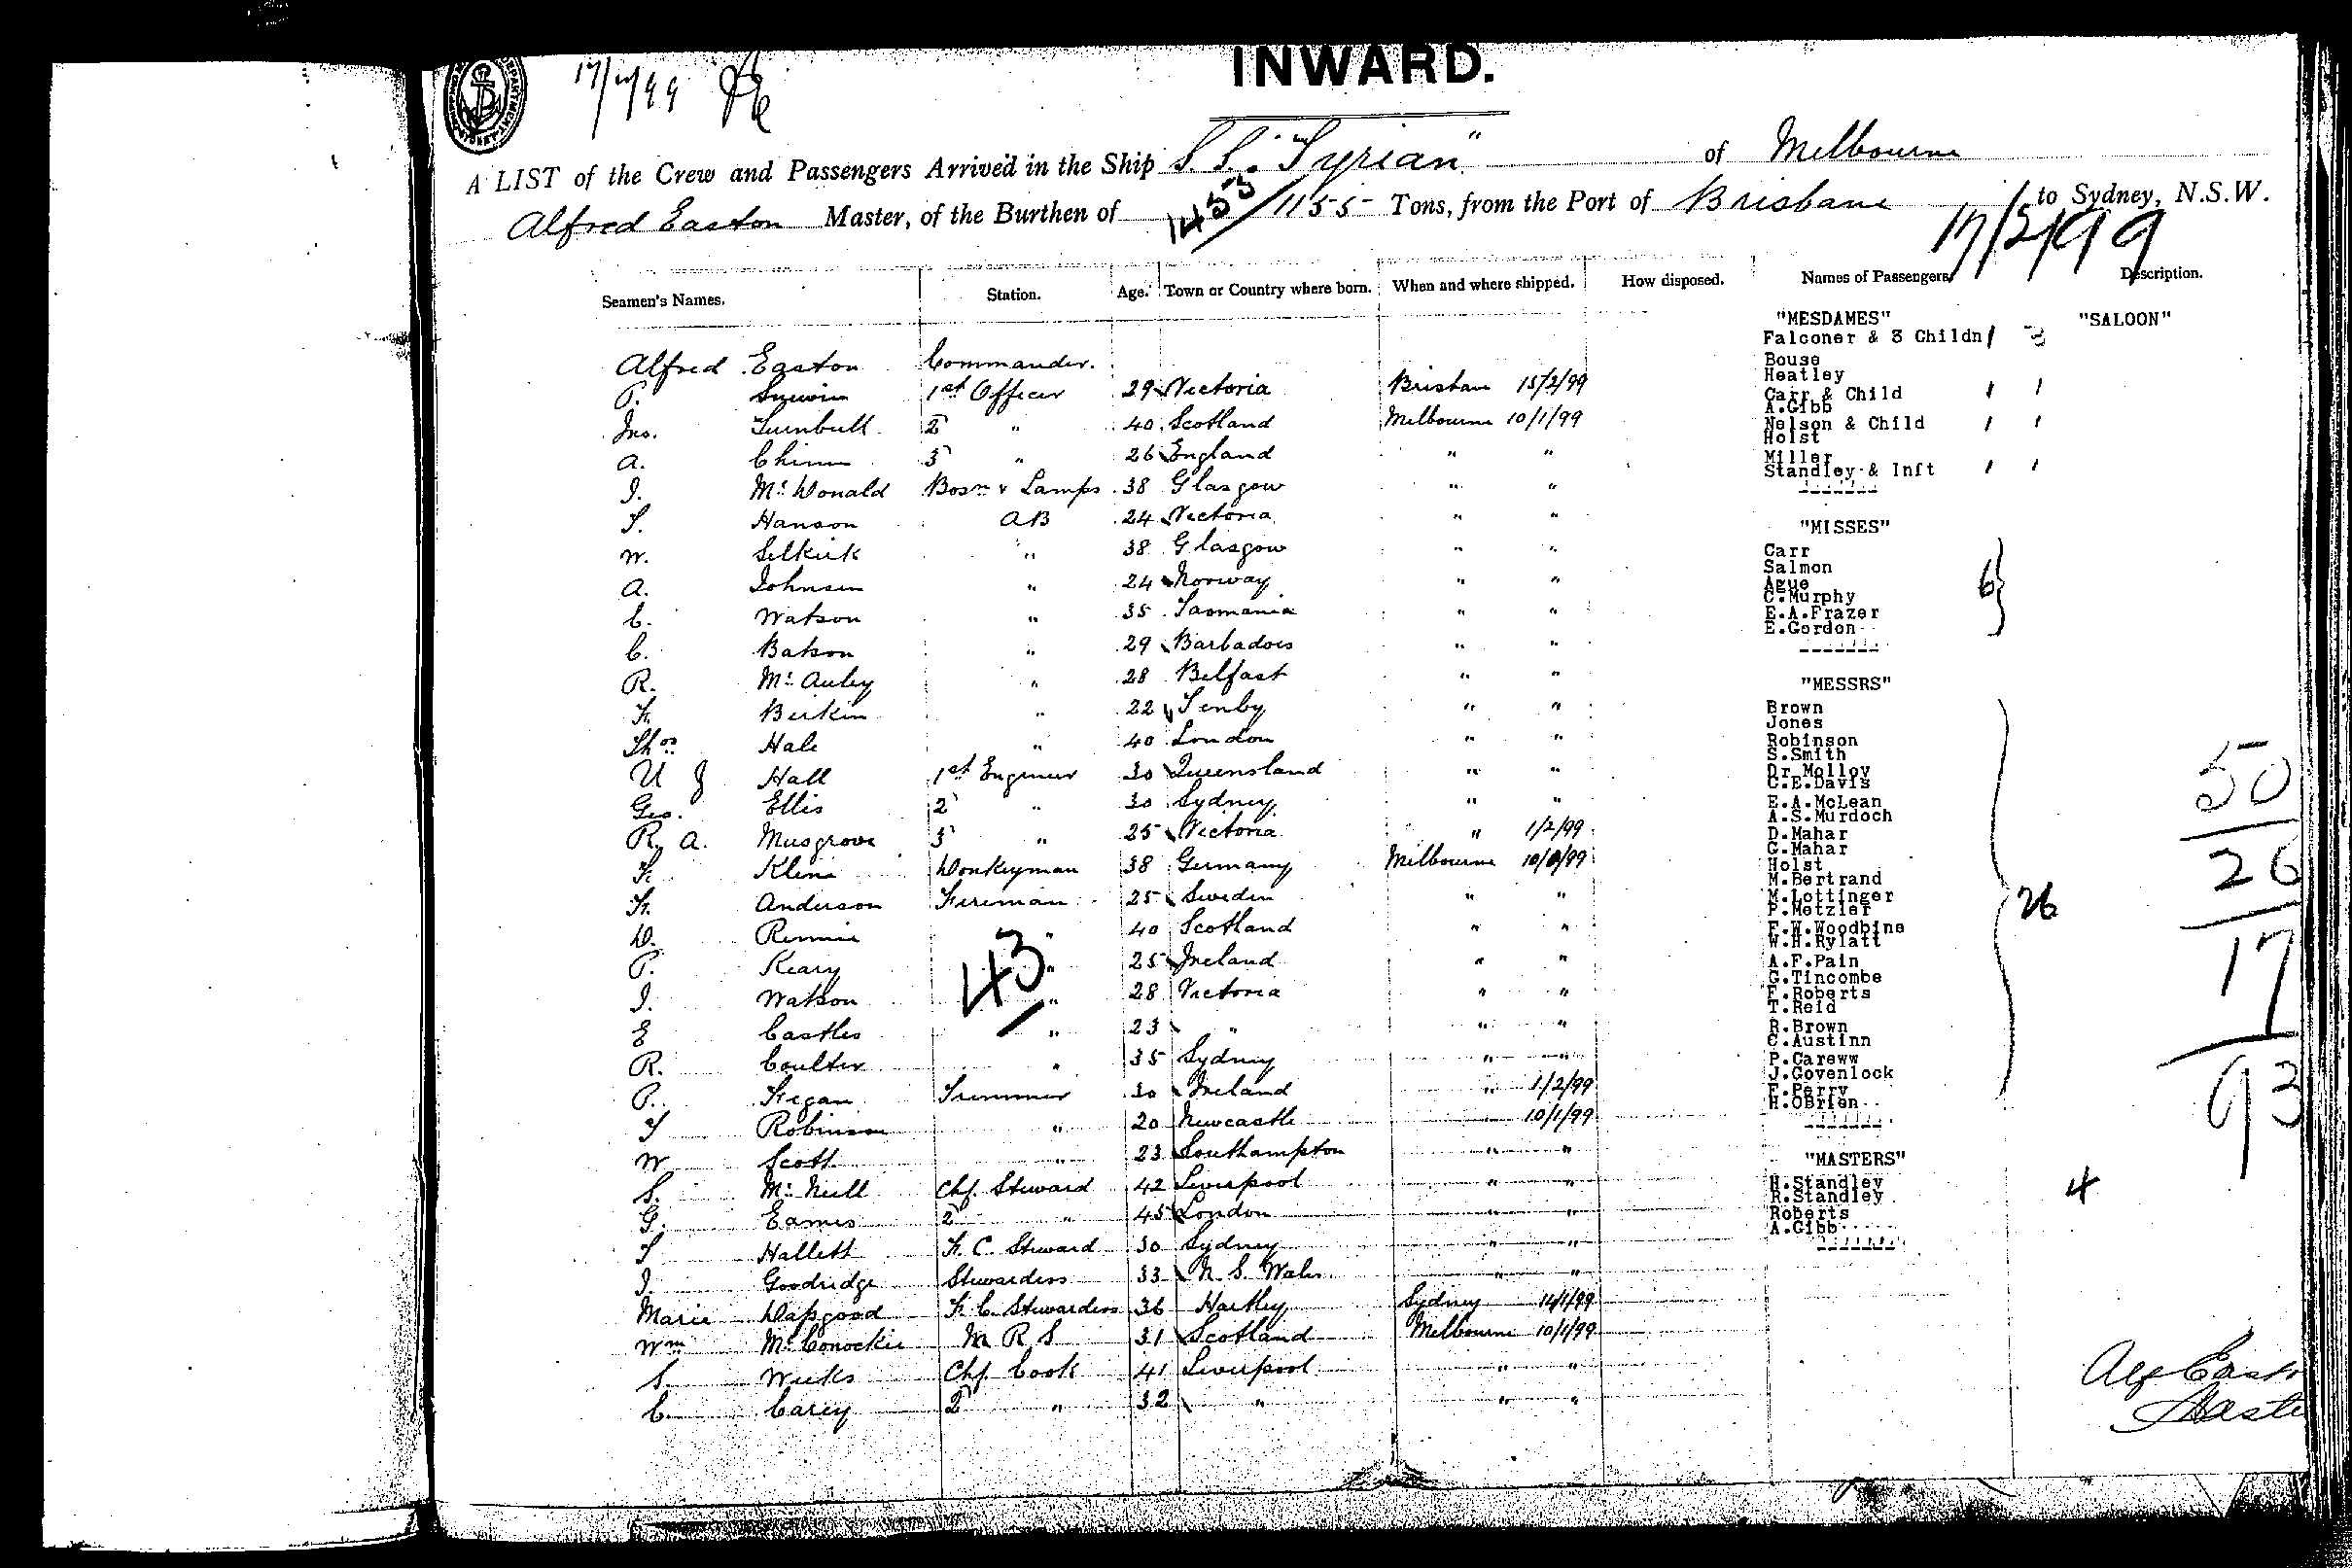 INWARD.
17/2/99
A LIST of the Crew and Passengers Arrived in the Ship S.S. "Tyrian" of Melbourne
Alfred Easton Master, of the Burthen of 1453/1155 Tons, from the Port of Brisbane to Sydney, N.S.W.
17/2/99
Seamen's Names. Station. Age. Town or Country where born. When and where shipped. How disposed. Names of Passengers Description.
Alfred Easton Commander.
P. 1st Officer 29 Victoria Brisbane 15/2/99
Jno. Turnbull 2 " 40 Scotland Melbourne 10/1/99
A. 3 " 26 England " "
J. McDonald Bosn & Lamps 38 Glasgow " "
T. Hanson AB 24 Victoria " "
W. Selkirk " 38 Glasgow " "
A. Johnsen " 24 Norway " "
C. Watson " 35 Tasmania " "
C. Batson " 29 Barbadoes " "
R. McAuley " 28 Belfast " "
F. Berkin " 22 Tenby " "
Thos Hale " 40 London " "
Hall 1st Engineer 30 Queensland " "
Geo. Ellis 2 " 30 Sydney " "
R. A. Musgrove 3 " 25 Victoria " 1/2/99
F. Kline Donkeyman 38 Germany Melbourne 10/1/99
F. Anderson Fireman 25 Sweden " "
D. Rennie " 40 Scotland " "
P. Keary " 25 Ireland " "
J. Watson " 28 Victoria " "
E Castles " 23 " " "
R. Coulter " 35 Sydney " "
P. Fegan Trimmer 30 Ireland " 1/2/99
T Robinson " 20 Newcastle 10/1/99
W Scott " 23 Southampton " "
S. McNeill Chf. Steward 42 Liverpool " "
G. Eames 2 " 45 London " "
T Hallett F. C. Steward 30 Sydney " "
J. Goodridge Stewardess 33 N. S. Wales " "
Marie Dapgood F. C. Stewardess 36 Hartley Sydney 14/1/99
Wm McConockie M R S 31 Scotland Melbourne 10/1/99
S. Weeks Chf. Cook 41 Liverpool " "
C. Carey 2 " 32 " " "
43
"MESDAMES" "SALOON"
Falconer & 3 Childn 1 3
Bouse
Heatley
Carr & Child 1 1
A.Gibb
Nelson & Child 1 1
Holst
Miller
Standley & Inft 1 1
"MISSES"
Carr
Salmon
Ague
C.Murphy
E.A.Frazer
E.Gordon
6
"MESSRS"
Brown
Jones
Robinson
S.Smith
Dr Molloy
C.E.Davis
E.A.McLean
A.S.Murdoch
D.Mahar
C.Mahar
Holst
M.Bertrand
M.Lottinger
P.Metzler
F.W.Woodbine
W.H.Rylatt
A.F.Pain
G.Tincombe
F.Roberts
T.Reid
R.Brown
C.Austinn
P.Careww
J.Govenlock
F.Perry
H.OBrien
26
"MASTERS"
H.Standley
R.Standley
Roberts
A.Gibb
4
50
26
17
93
Alf East
Maste